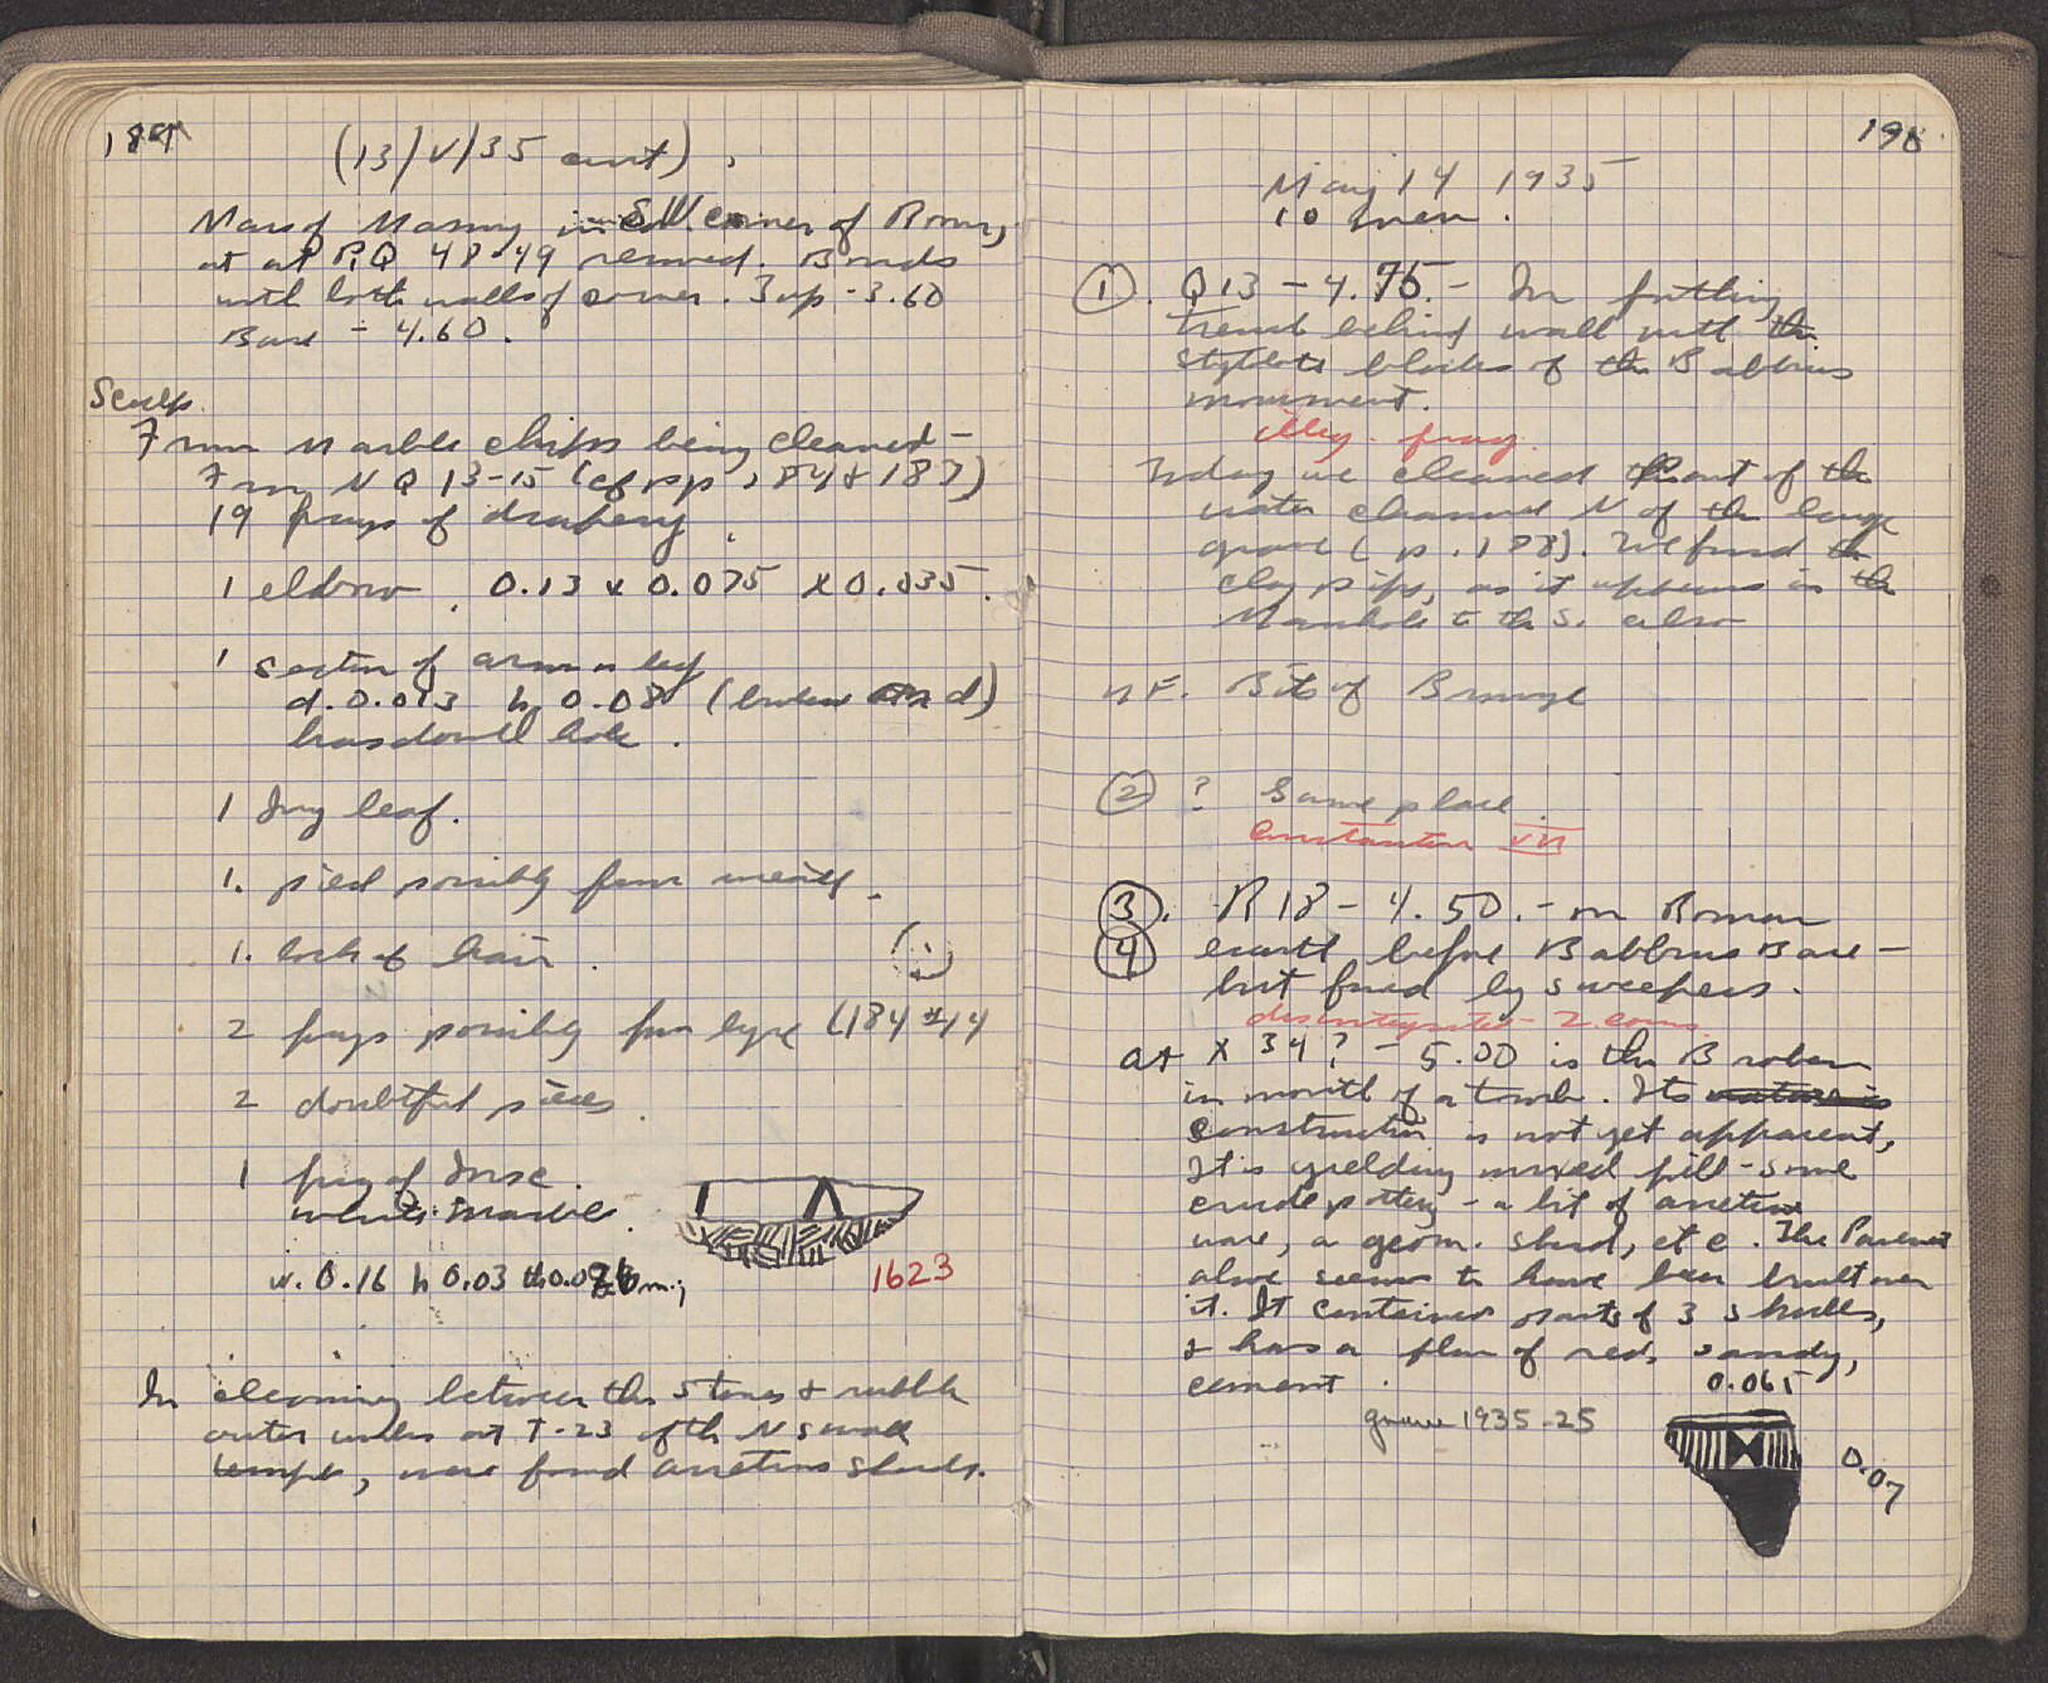 189
(13/V/35 cont).
Mass of Masonry in SW. corner of Room,
at RQ 48-49 removed. Bonds
with both walls of corner. Top -3.60
Base - 4.60.
Sculp.
From marble chips being cleaned -
From N Q 13-15 (cf pp 184 & 187)
19 frags of drapery.
1 elbow. 0.13 x 0.075 x 0.035.
1 section of arm or leg
d. 0.013 h 0.08 (broken end)
has dowell hole.
1 Ivy leaf.
1. piece possibly from
1. lock of hair.
2 frags possibly from lyre (184 #14
2 doubtful pieces.
1 frag of
white Marble.
w. 0.16 h 0.03 th 0.0 m.;
1623
In cleaning between the stones & rubble
at T-23 of the N S wall
were found arretine sherds.
198
May 14 1935
10 men.
① Q13 - 4.75. - In
trench behind wall with the
stylobate blocks of the Babbius
monument.
illeg. frag.
Today we cleaned out of the
water channel N of the large
grave (p. 188). We found the
clay pipe, as it appears in the
Manhole to the S. also
NF. Bits of Bronze
② ? Same place.
Constantine VII
③. R18 - 4.50. - in Roman
④ earth before Babbius Base -
but found by sweepers.
disintegrated - 2 coins.
at X 34? - 5.00 is the Broken
in mouth of a tomb. Its
construction is not yet apparent,
It is yielding mixed fill - some
crude pottery - a bit of arretine
ware, a geom. sherd, etc. The Pavement
above seems to have been built over
it. It contained parts of 3 skulls,
& has a floor of red, sandy,
cement.
0.065
grave 1935-25
0.07